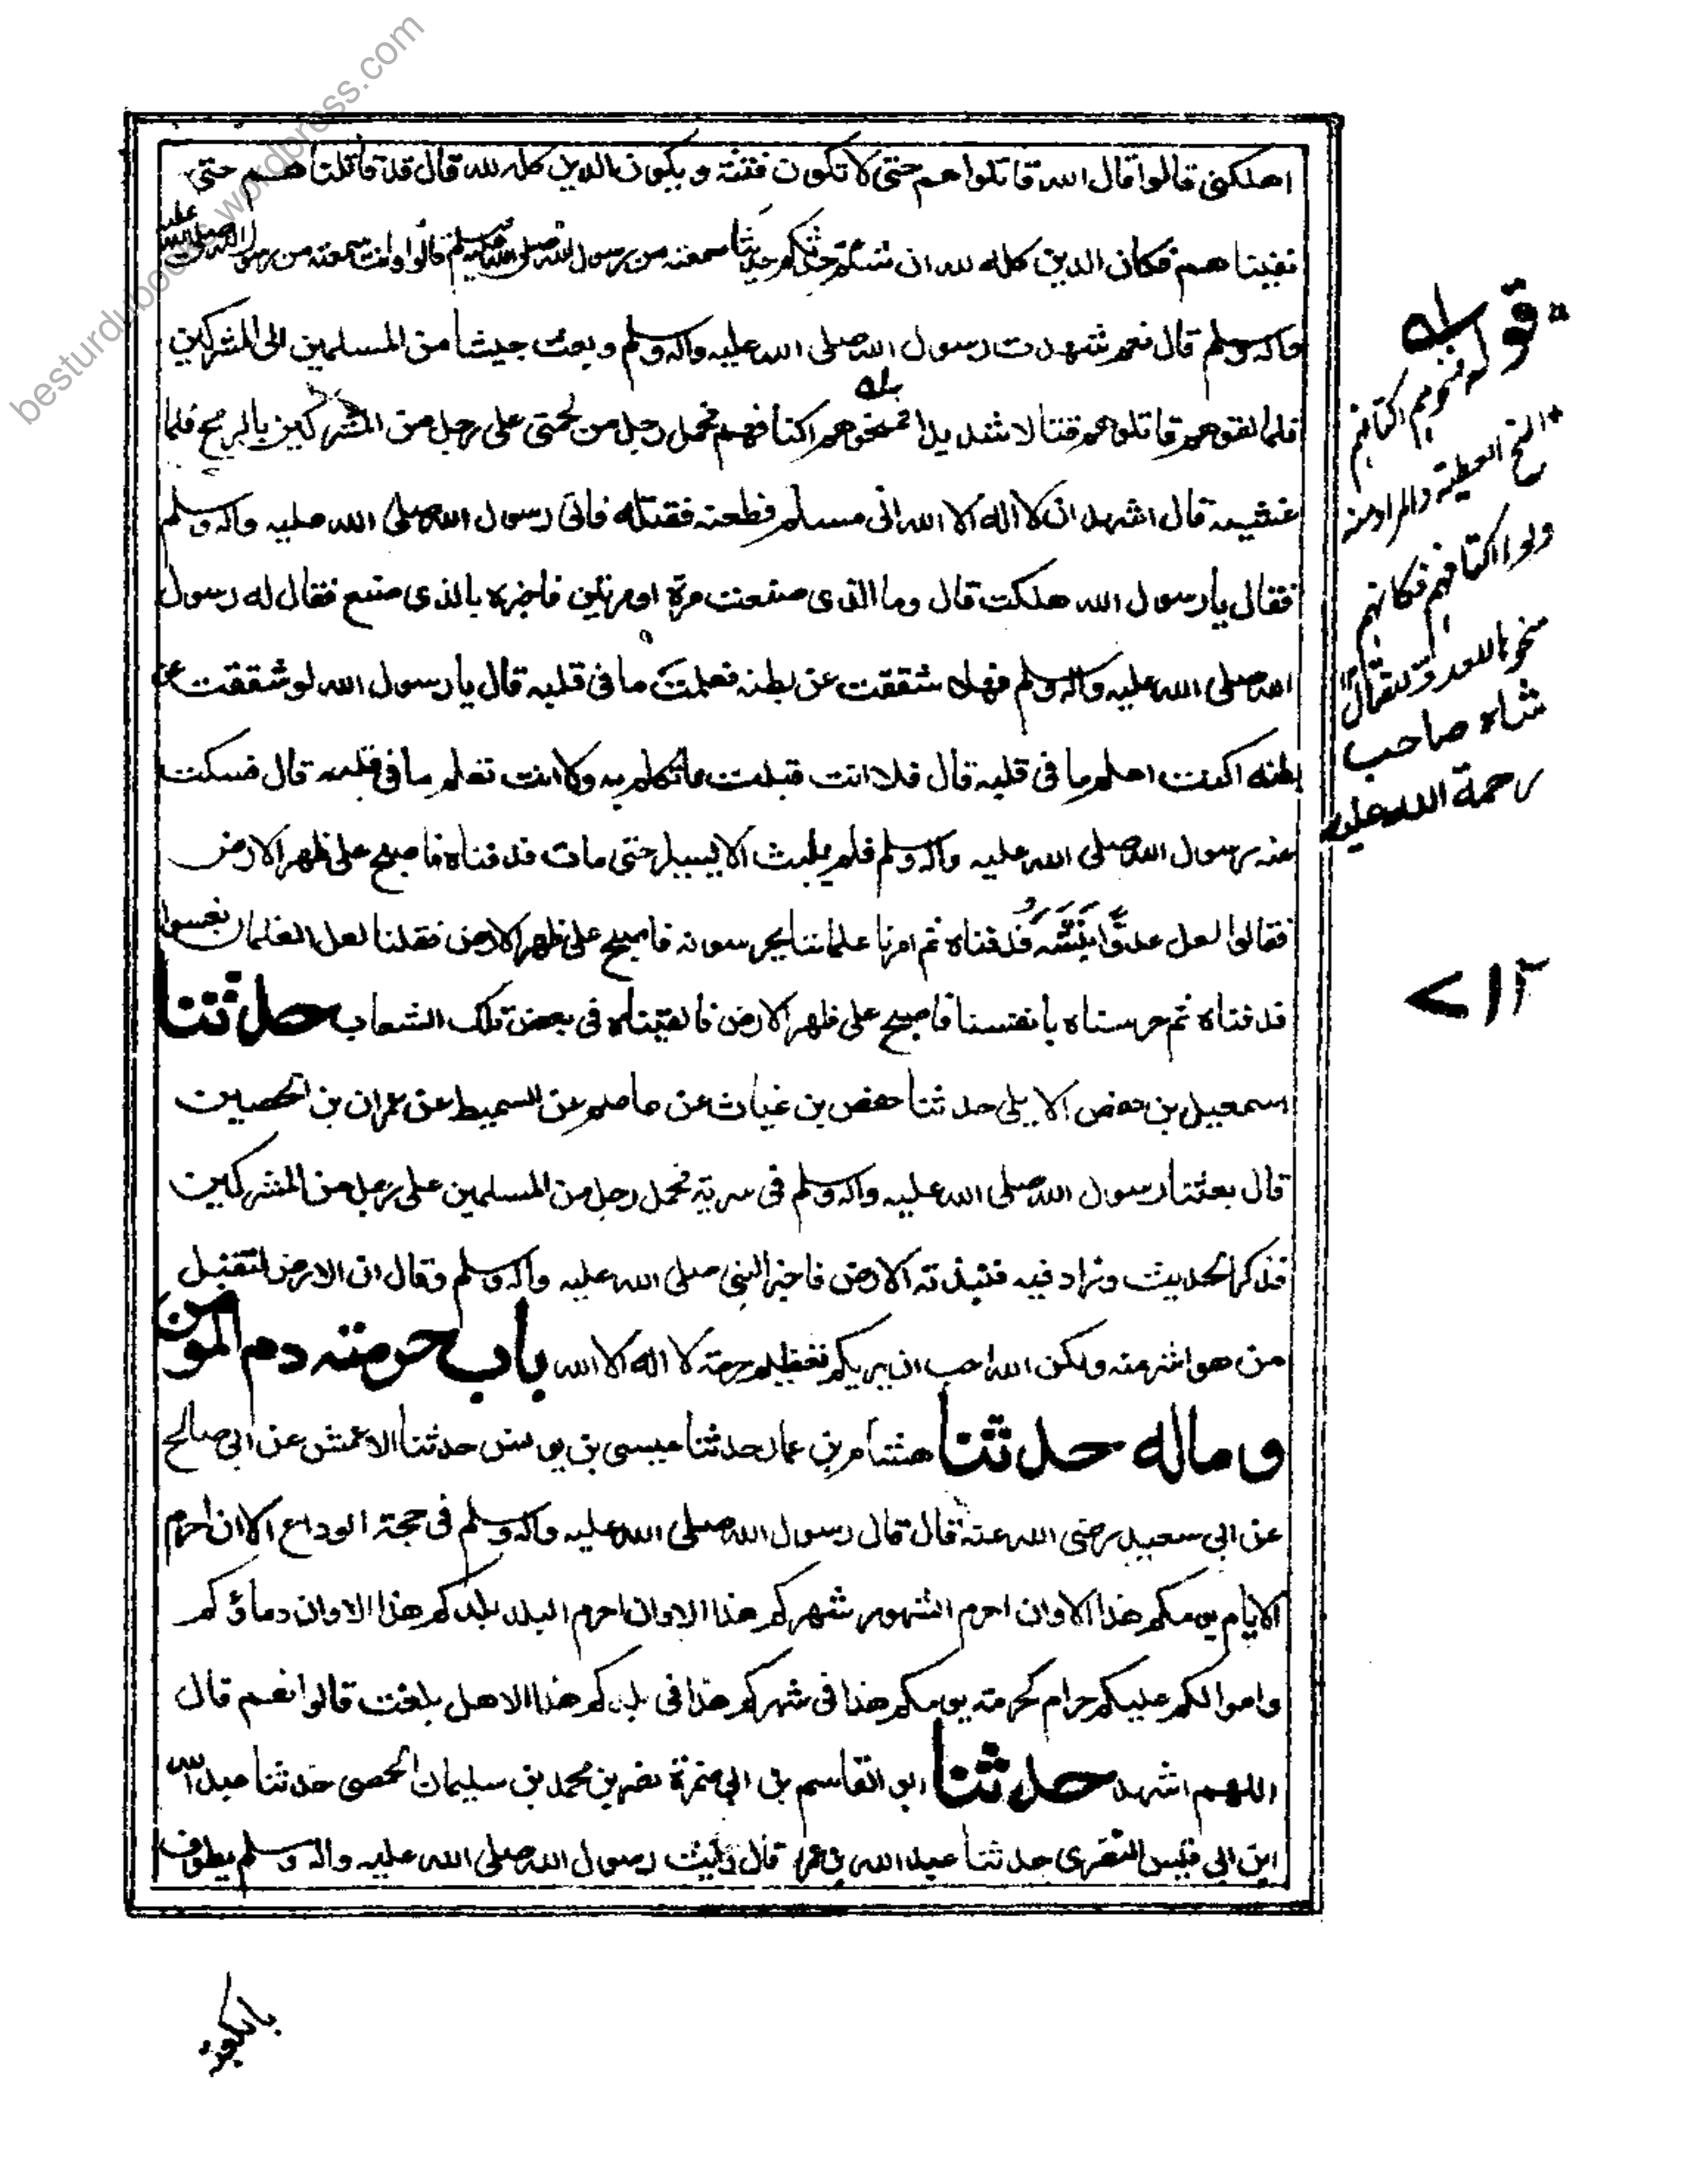 اهلكنى قالوا قال الله قاتلوا هم حتى لا تكون فتنة و يكون الدين كله لله قال قد قاتلنا هم حتى
نفينا هم فكان الدين كله لله ان شئتم حدثتكم حديثا سمعته من رسول الله صلى الله عليه وسلم قالوا وانت سمعته من رسول الله صلى الله عليه
واله وسلم قال نعم شهدت رسول الله صلى الله عليه واله وسلم و بعث جيشا من المسلمين الى المشركين
فلما لقوهم قاتلوهم قتالا شديدا فمنحوهم اكتافهم فحمل رجل من لحمتى على رجل من المشركين بالرمح فلما
غشيه قال اشهد ان لا اله الا الله انى مسلم فطعنه فقتله فاتى رسول الله صلى الله عليه واله وسلم
فقال يا رسول الله هلكت قال وما الذى صنعت مرة او مرتين فاخبره بالذى صنع فقال له رسول
الله صلى الله عليه واله وسلم فهلا شققت عن بطنه فعلمت ما فى قلبه قال يا رسول الله لو شققت عن
بطنه اكنت اعلم ما فى قلبه قال فلا انت قبلت ما تكلم به ولا انت تعلم ما فى قلبه قال فسكت
عنه رسول الله صلى الله عليه واله وسلم فلم يلبث الا يسيرا حتى مات فدفناه فاصبح على ظهر الارض
فقالوا لعل عدوّا نبشه فدفناه ثم امرنا غلماننا يحرسونه فاصبح على ظهر الارض فقلنا لعل الغلمان نعسوا
فدفناه ثم حرسناه بانفسنا فاصبح على ظهر الارض فالقيناه فى بعض تلك الشعاب حدثنا
اسمعيل بن حفص الايلى حدثنا حفص بن غياث عن عاصم عن السميط عن عمران بن الحصين
قال بعثنا رسول الله صلى الله عليه واله وسلم فى سرية فحمل رجل من المسلمين على رجل من المشركين
فذكر الحديث وزاد فيه فنبذته الارض فاخبر النبى صلى الله عليه واله وسلم وقال ان الارض لتقبل
من هو اشر منه ولكن الله احب ان يريكم تعظيم حرمة لا اله الا الله باب حرمة دم المومن
و ماله حدثنا هشام بن عمار حدثنا عيسى بن يونس حدثنا الاعمش عن ابى صالح
عن ابى سعيد رضى الله عنه قال قال رسول الله صلى الله عليه واله وسلم فى حجة الوداع الا ان احرم
الايام يومكم هذا الا وان احرم الشهور شهركم هذا الا وان احرم البلد بلدكم هذا الا وان دماؤكم
واموالكم عليكم حرام كحرمة يومكم هذا فى شهركم هذا فى بلدكم هذا الا هل بلغت قالوا نعم قال
اللهم اشهد حدثنا ابو القاسم بن ابى ضمرة نصر بن محمد بن سليمان الحمصى حدثنا عبد الله
ابن ابى قيس النصرى حدثنا عبد الله بن عمر قال رأيت رسول الله صلى الله عليه واله وسلم يطوف
قوله
فمنحوهم اكتافهم
المنح العطية والمراد منه
ولوا اكتافهم فكانهم
شاه صاحب
رحمة الله عليه
١٢
بالكعبة
besturdubooks.wordpress.com